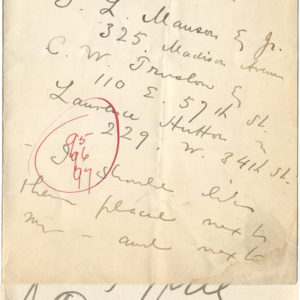 J. L. Manson Esq Jr.
325. Madison Avenue
C. W. Truslow Esq
110 E. 57th St.
Laurence Hutton Esq
229. W. 34th St.
95
96
97
– I should like
them placed next to
me – and next to